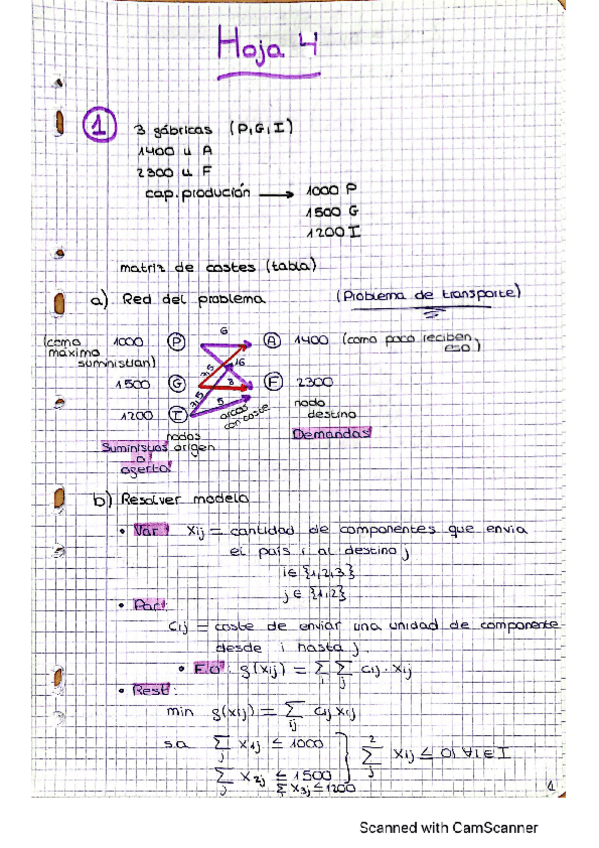 Hoja 4
1 3 fábricas (P,G,I)
1400 u A
2300 u F
cap. produción → 1000 P
1500 G
1200 I
matriz de costes (tabla)
a) Red del problema (Problema de transporte)
(como máximo suministran) 1000 P 6 A 1400 (como poco reciben eso)
16
3,5
1500 G 8 F 2300
3,5 5
1200 I arcos con coste nodo destino
nodos origen Demandas
Suministros o oferta
b) Resolver modelo
• Var: Xij = cantidad de componentes que envia
el país i al destino j
i∈{1,2,3}
j∈{1,2}
• Par:
Cij = coste de enviar una unidad de componente
desde i hasta j.
• F.O: f(xij) = ΣiΣj cij · xij
• Rest:
min f(xij) = Σij cij xij
s.a Σj x1j ≤ 1000
Σj x2j ≤ 1500 } Σj² xij ≤ Oi ∀i∈I
Σ x3j ≤ 1200
1
Scanned with CamScanner